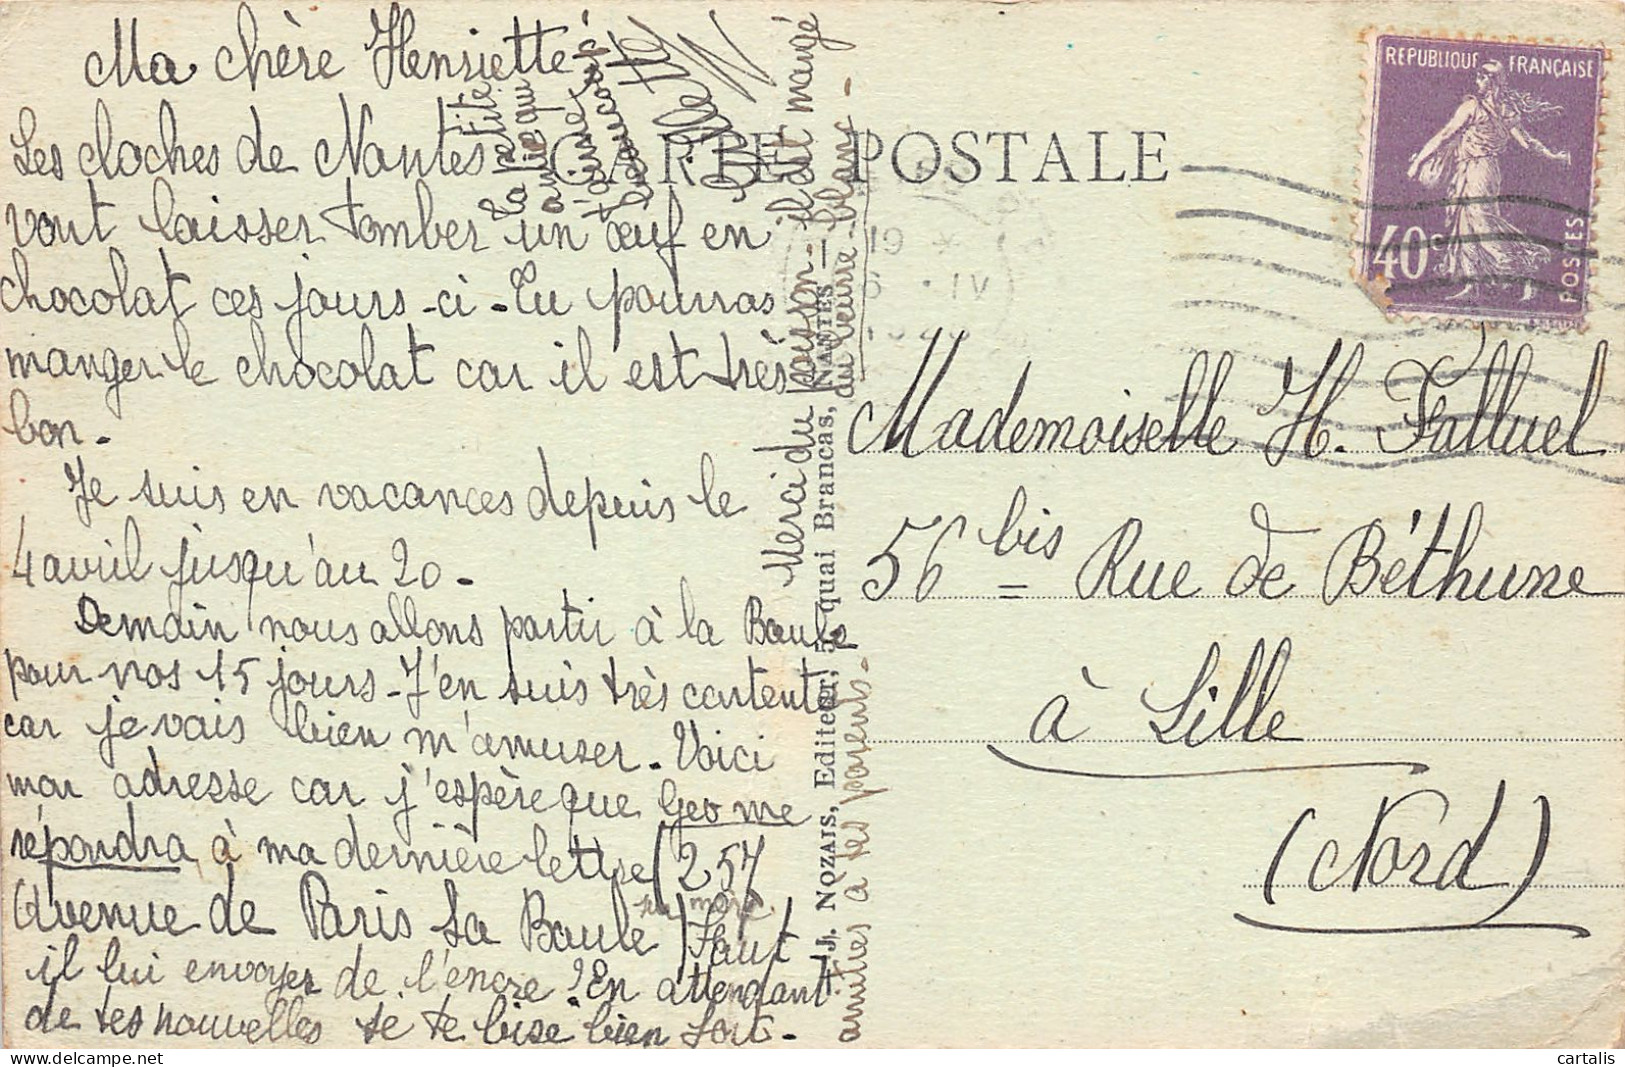 Ma chère Henriette
Les cloches de Nantes
vont laisser tomber un œuf en
chocolat ces jours-ci - Tu pourras
manger le chocolat car il est très
bon.
Je suis en vacances depuis le
4 avril jusqu'au 20.
Demain nous allons partir à la Baule
pour nos 15 jours - J'en suis très contente
car je vais bien m'amuser. Voici
mon adresse car j'espère que Geo me
répondra à ma dernière lettre (257
Avenue de Paris La Baule) Faut
il lui envoyer de l'encre? En attendant
de tes nouvelles je te bise bien fort -
La petite
amie qui
t'aime
beaucoup
Merci du poisson - il a été mangé
au beurre - blanc -
amitiés à tes parents -
CARTE POSTALE
J. NOZAIS, Editeur, 5, quai Brancas, NANTES
REPUBLIQUE FRANÇAISE
40c
POSTES
19 *
IV
Mademoiselle H. Falluel
56 bis Rue de Béthune
à Lille
(Nord)
cartalis
www.delcampe.net